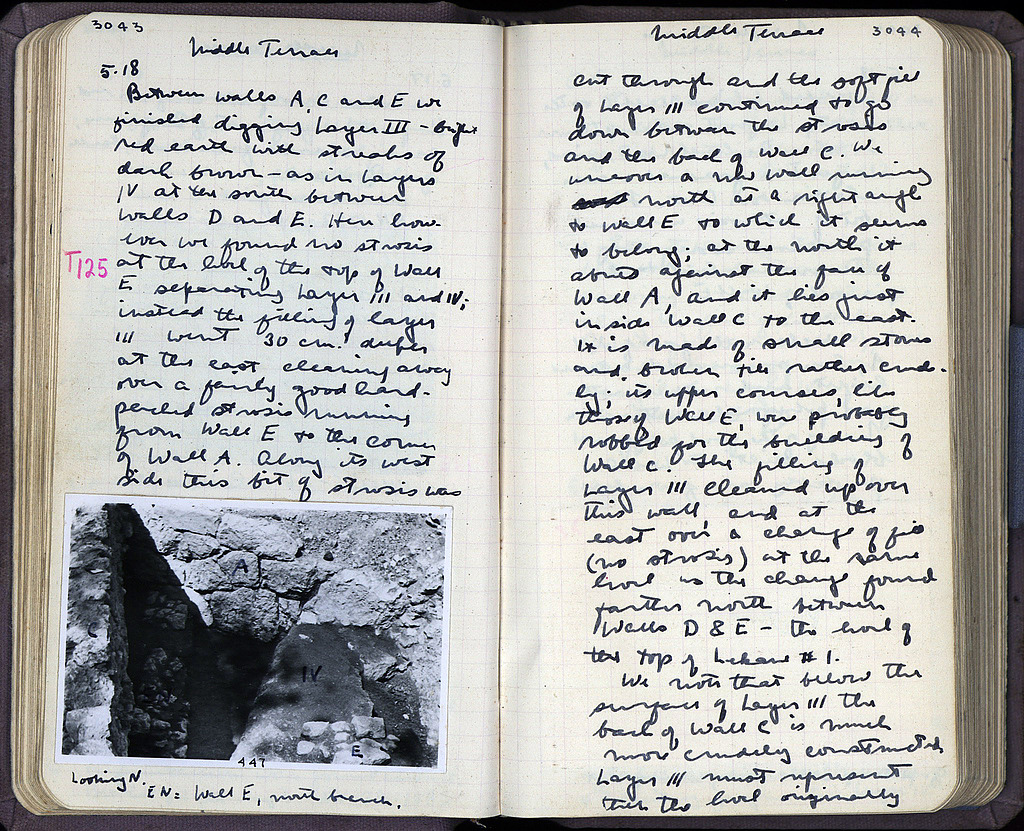 3043
Middle Terrace
5.18
Between walls A, C and E we
finished digging Layer III – bright
red earth with streaks of
dark brown – as in Layers
IV at the south between
walls D and E. Here how-
ever we found no strosis
T125
at the level of the top of Wall
E separating Layer III and IV;
instead the filling of layer
III went 30 cm. deeper
at the east clearing away
over a fairly good hard-
packed strosis running
from Wall E to the corner
of Wall A. Along its west
side this bit of strosis was
A
IV
E
447
Looking N.
EN = Wall E, north branch.
Middle Terrace
3044
cut through and the soft fill
of Layer III continued to go
down between the strosis
and the back of Wall C. We
uncover a new wall running
north at a right angle
to Wall E to which it seems
to belong; at the north it
abuts against the face of
Wall A, and it lies just
inside Wall C to the east.
It is made of small stones
and broken tiles rather crude-
ly; its upper courses, like
those of Wall E, were probably
robbed for the building of
Wall C. The filling of
Layer III cleaned up over
this wall, and at the
east over a change of fill
(no strosis) at the same
level as the change found
farther north between
Walls D & E – the level of
the top of Lekane #1.
We note that below the
surface of Layer III the
back of Wall C is much
more crudely constructed
Layer III must represent
then the level originally